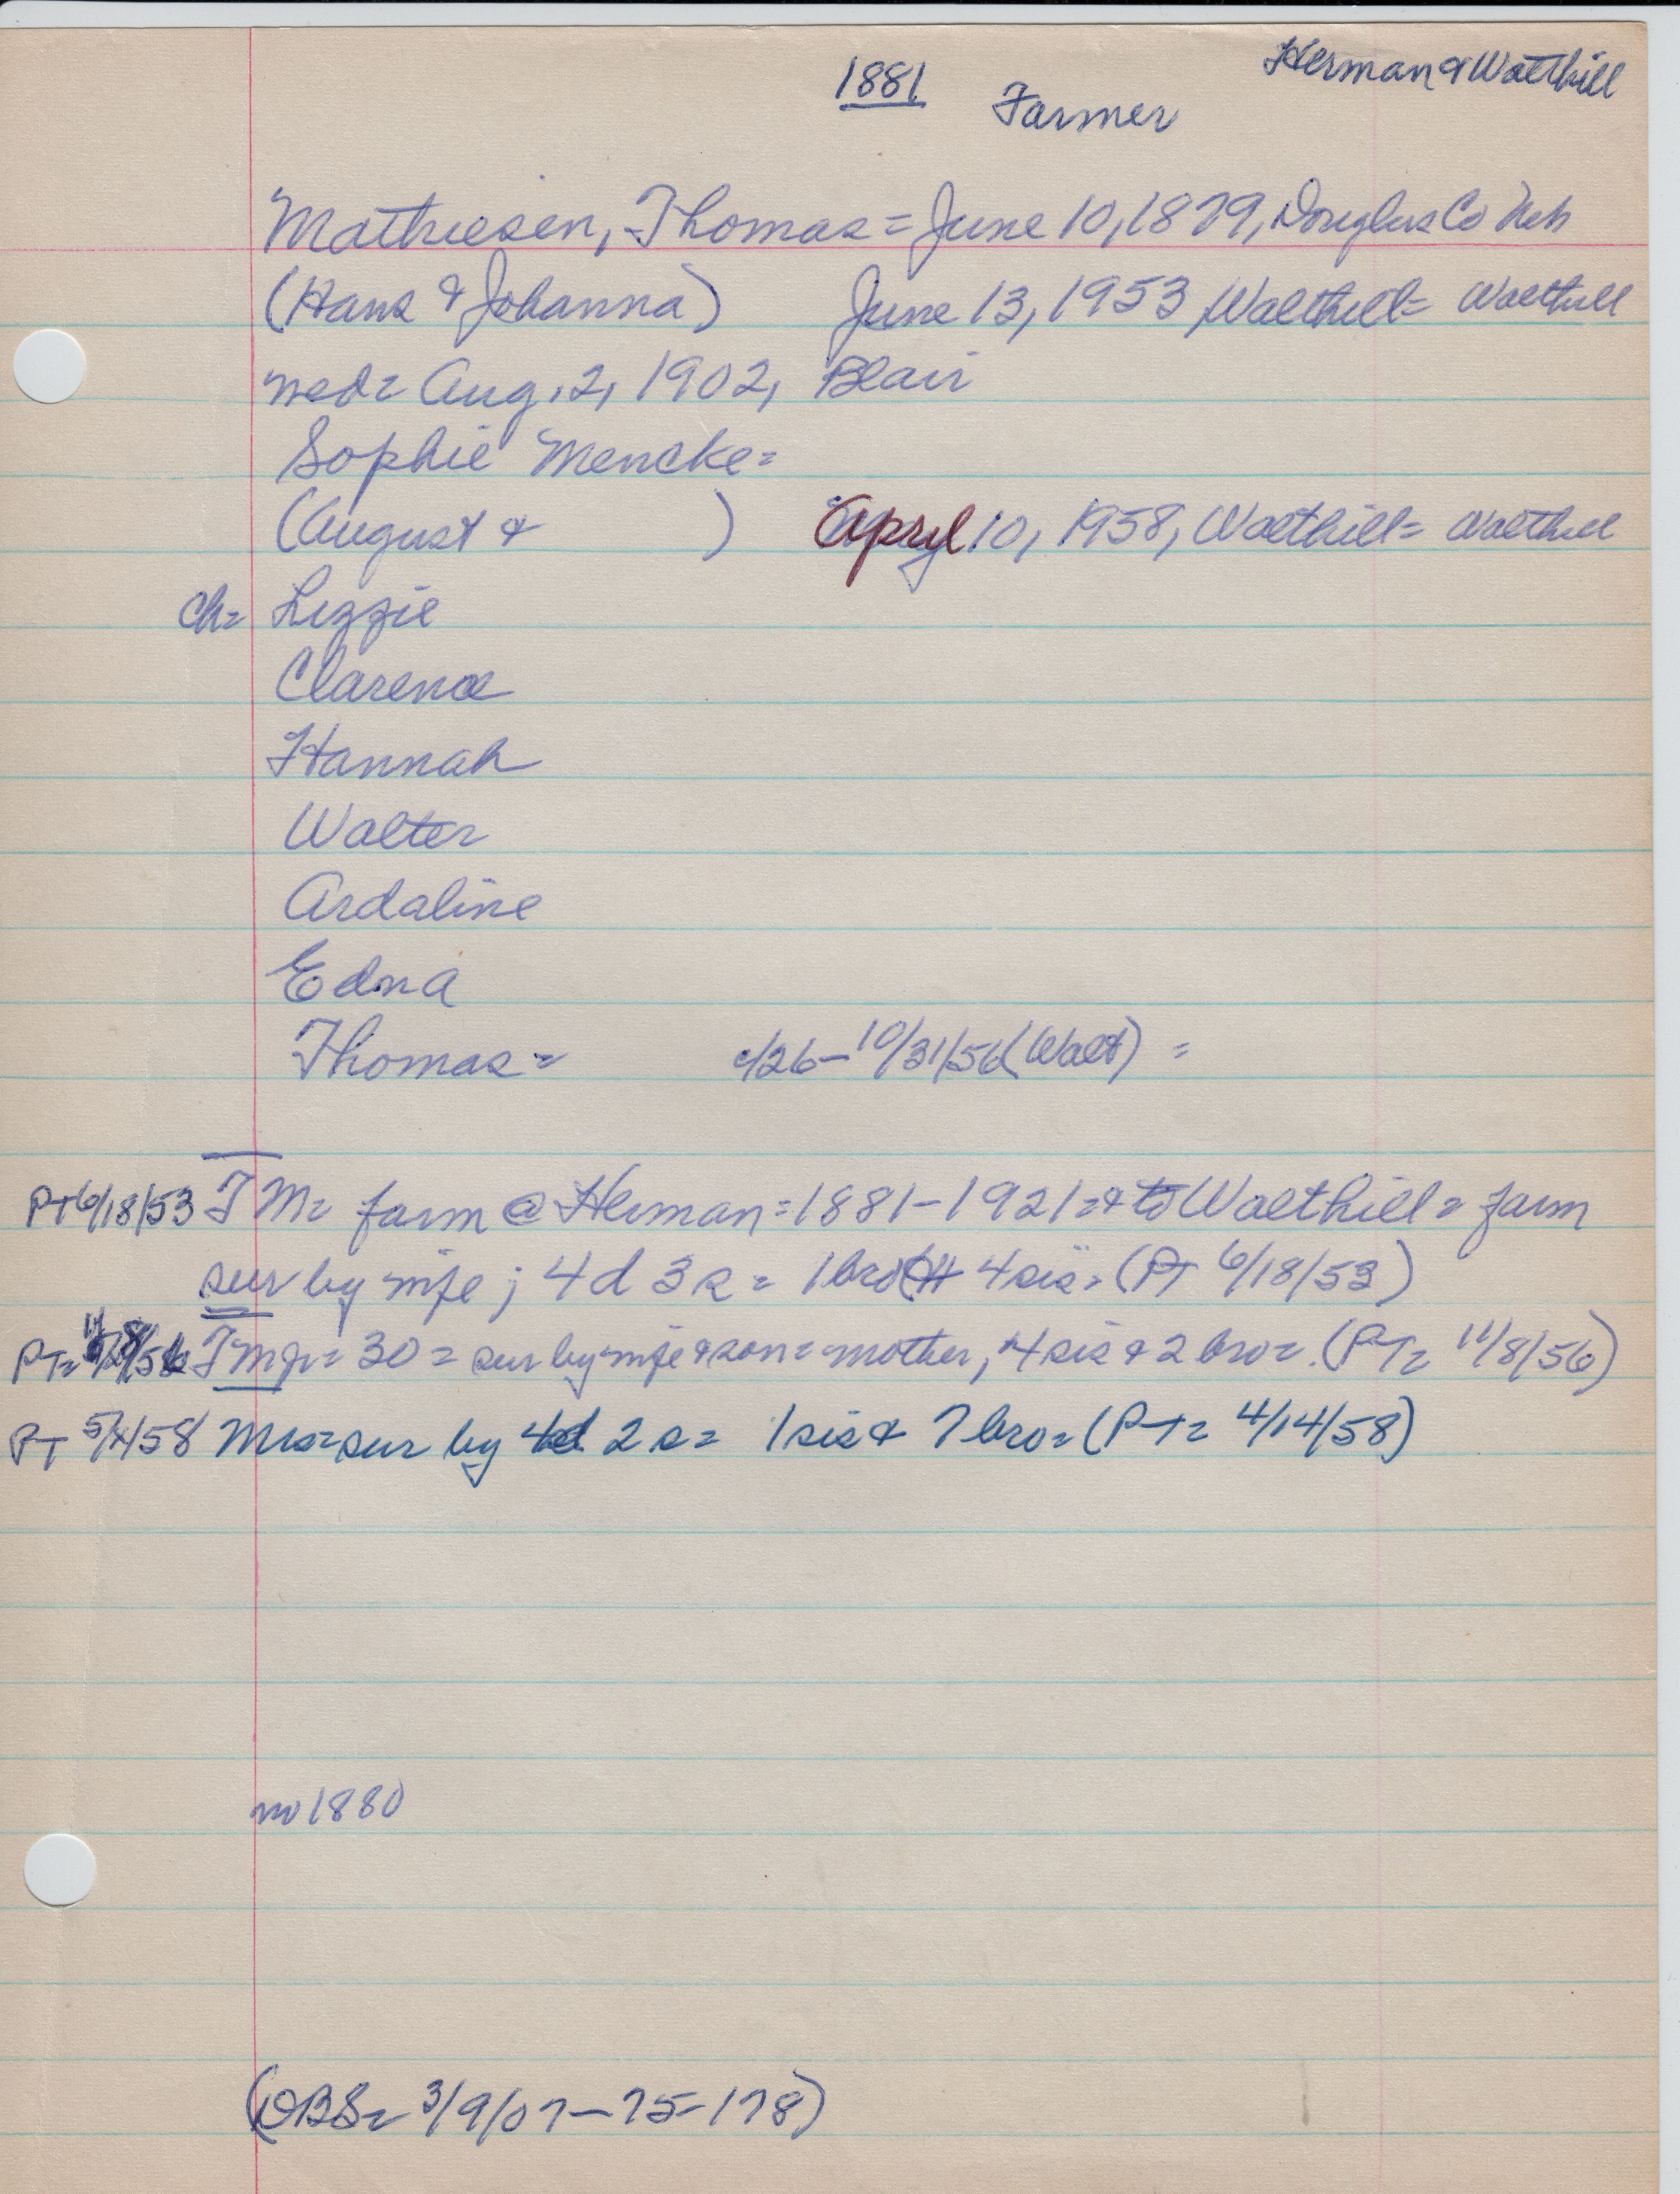 1881
Farmer
Herman & Walthill
Mathiesen, Thomas = June 10, 1879, Douglas Co Neb
(Hans & Johanna) June 13, 1953, Walthill = Walthill
med = Aug. 2, 1902, Blair
Sophie Mencke =
(August & ) April 10, 1958, Walthill = Walthill
Ch = Lizzie
Clarence
Hannah
Walter
Ardaline
Edna
Thomas = c/26 - 10/31/56 (Walt) =
PT 6/18/53 TM = farm @ Herman = 1881 - 1921 = & to Walthill = farm
sur by wife; 4 d 3 s = 1 bro 4 sis = (PT 6/18/53)
PT = 11/8/56 TM jr = 30 = sur by wife & son = mother, 4 sis & 2 bro = (PT = 11/8/56)
PT 5/ /58 Mrs = sur by 4 d 2 s = 1 sis & 7 bro = (PT = 4/14/58)
no 1880
(DBS = 3/9/07 - 75 - 178)